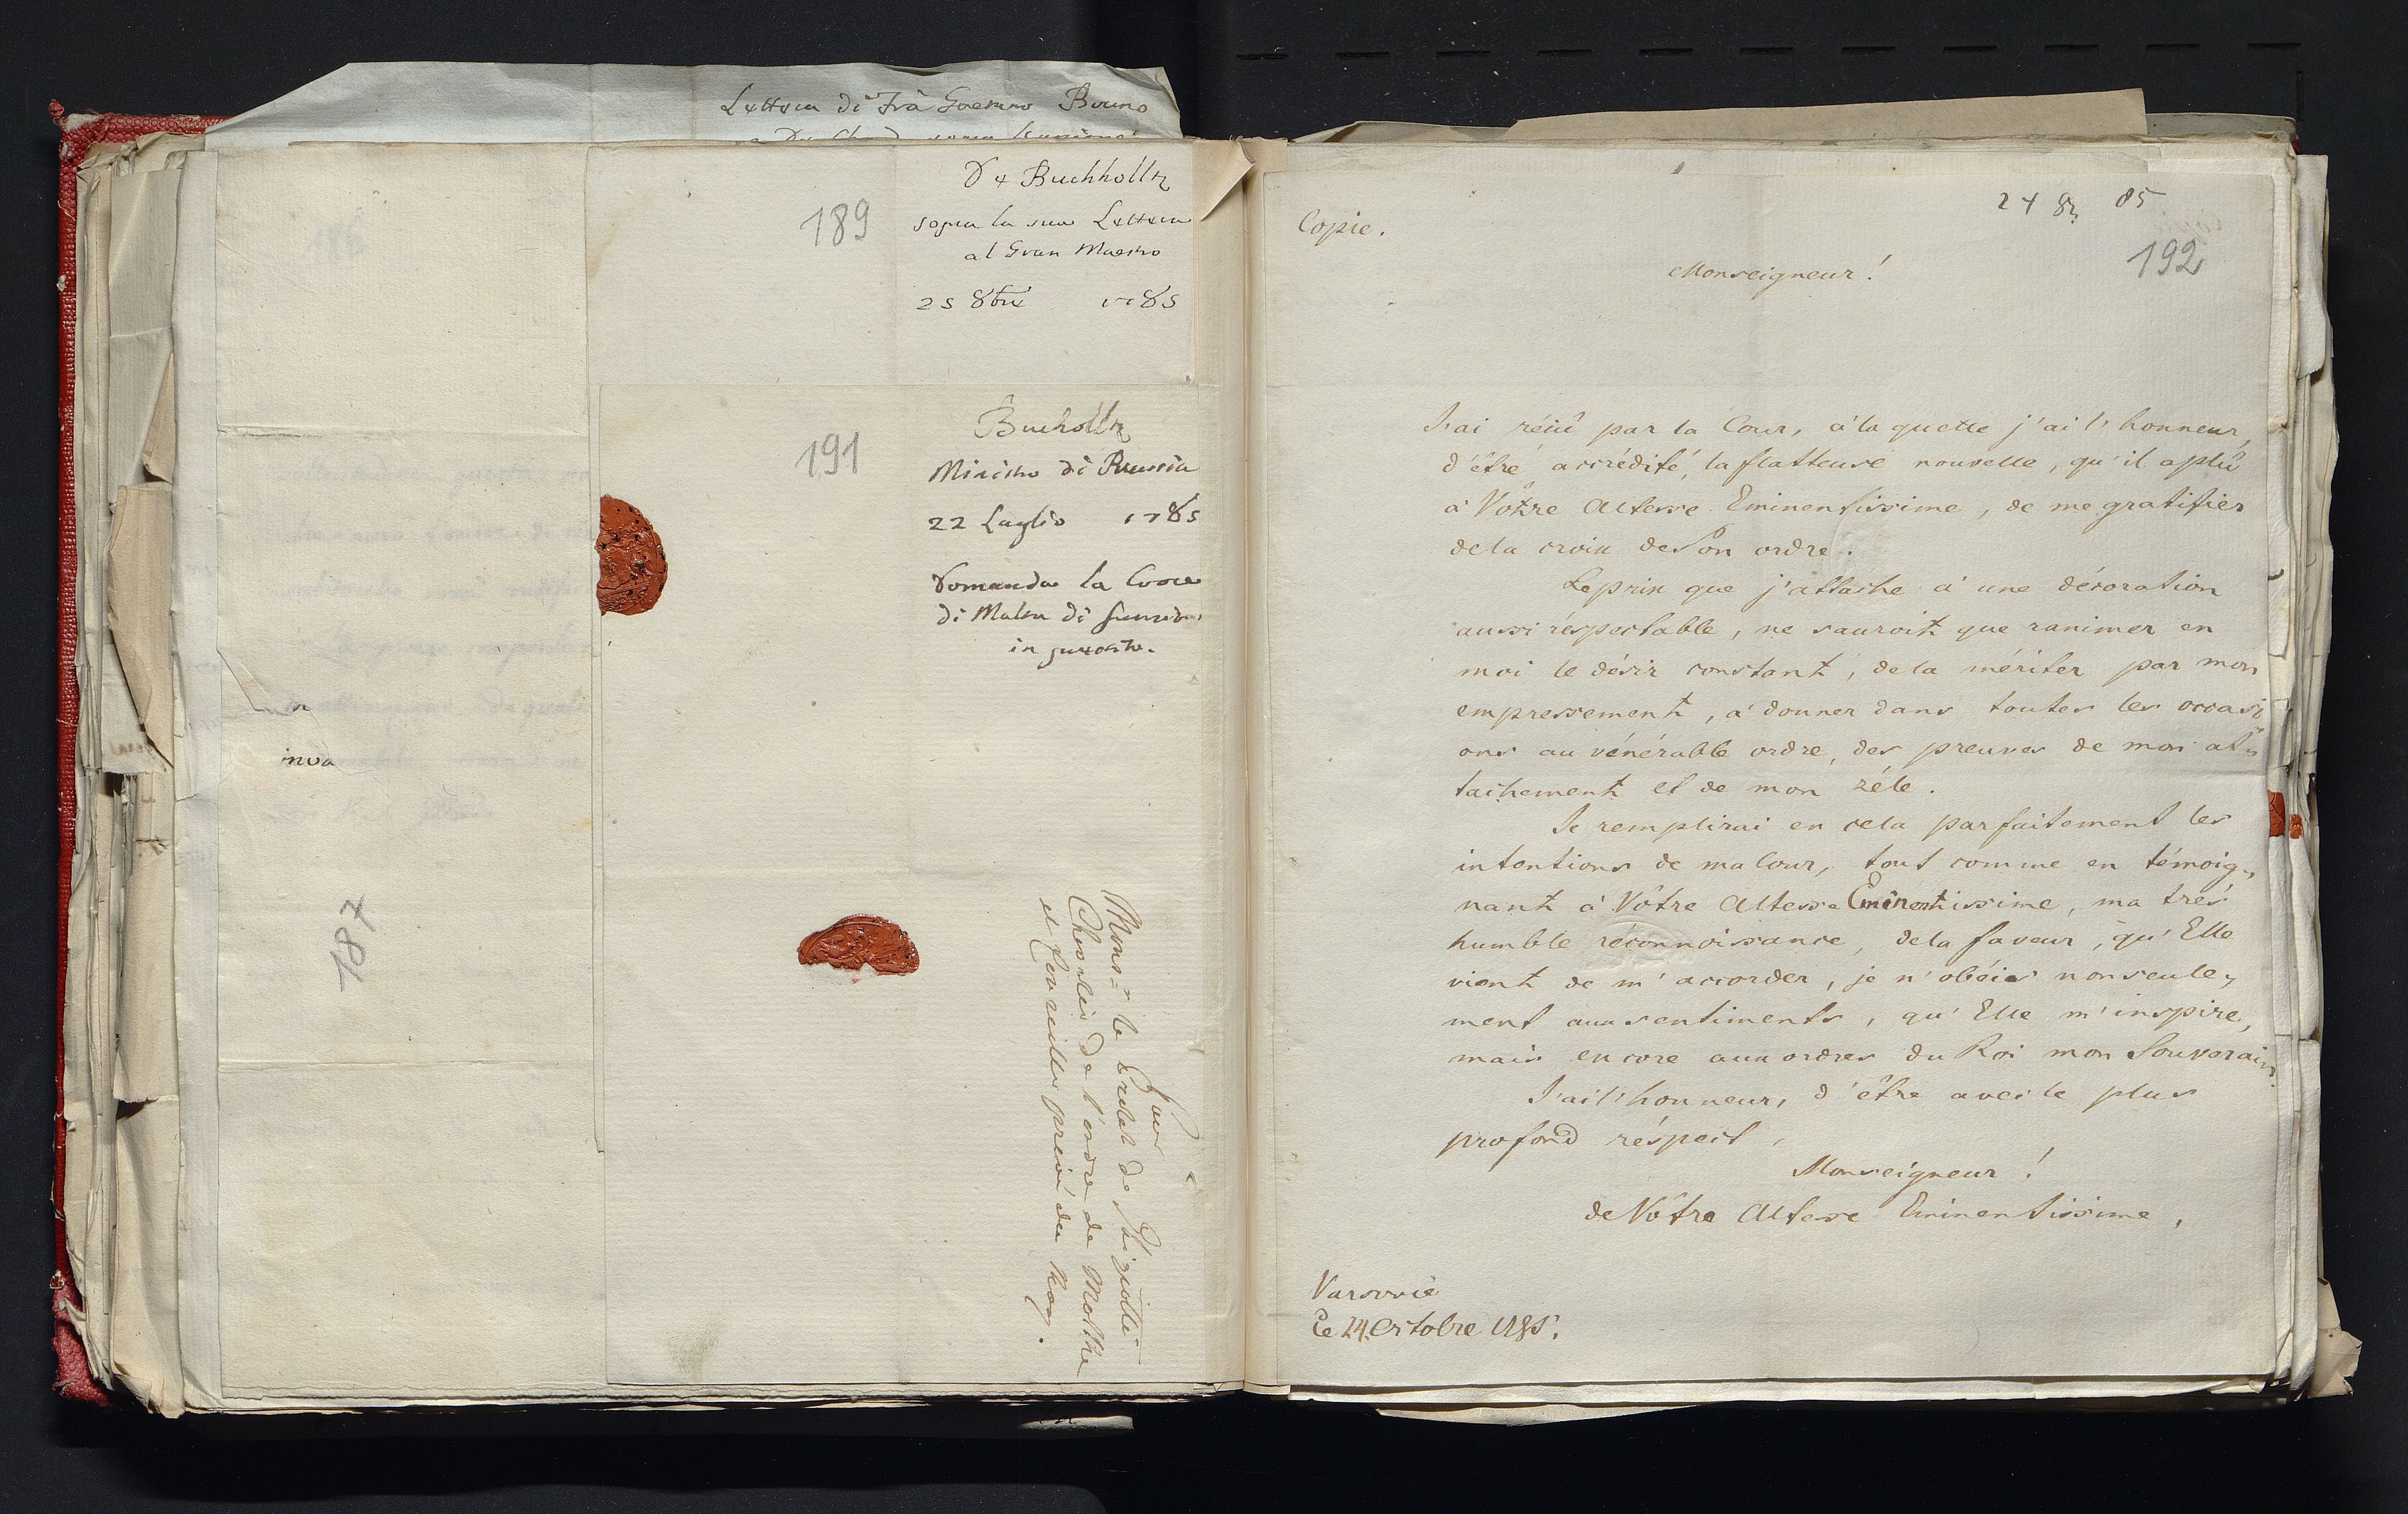 Lettera di Frà Gaetano Bruno
De Buchholtz
189
sopra la sua Lettera
al Gran Maestro
25 8bre 1785
Bucholtz
191
Ministro di Prussia
22 Luglio 1785
Domanda la Croce
di Malta di
in
inva
187
Pour
Monsr. le Prelat de Ghigiotti
Chevalier de l'ordre de Malthe
et Conseiller privé du Roy.
24 8b 85
Copie.
192
Monseigneur!
J'ai réçû par la Cour, à la quelle j'ai l'honneur,
d'être accrédité, la flatteuse nouvelle, qu'il a plû
à Vôtre Altesse Eminentissime, de me gratifier
de la croix de Son ordre.
Le prix que j'attache à une décoration
aussi réspectable, ne sauroit que ranimer en
moi le désir constant, de la mériter par mon
empressement, à donner dans toutes les occasi
ons au vénérable ordre, des preuves de mon at„
tachement et de mon zéle.
Je remplirai en cela parfaitement les
intentions de ma Cour, tout comme en témoig„
nant à Vôtre Altesse Eminentissime, ma trés
humble réconnoissance, de la faveur, qu'Elle
vient de m'accorder, je n'obéis non seule„
ment aux sentiments, qu'Elle m'inspire,
mais encore aux ordres du Roi mon Souverain.
J'ai l'honneur, d'être avec le plus
profond réspect,
Monseigneur!
de Vôtre Altesse Eminentissime,
Varsovie
ce 24. Octobre 1785.